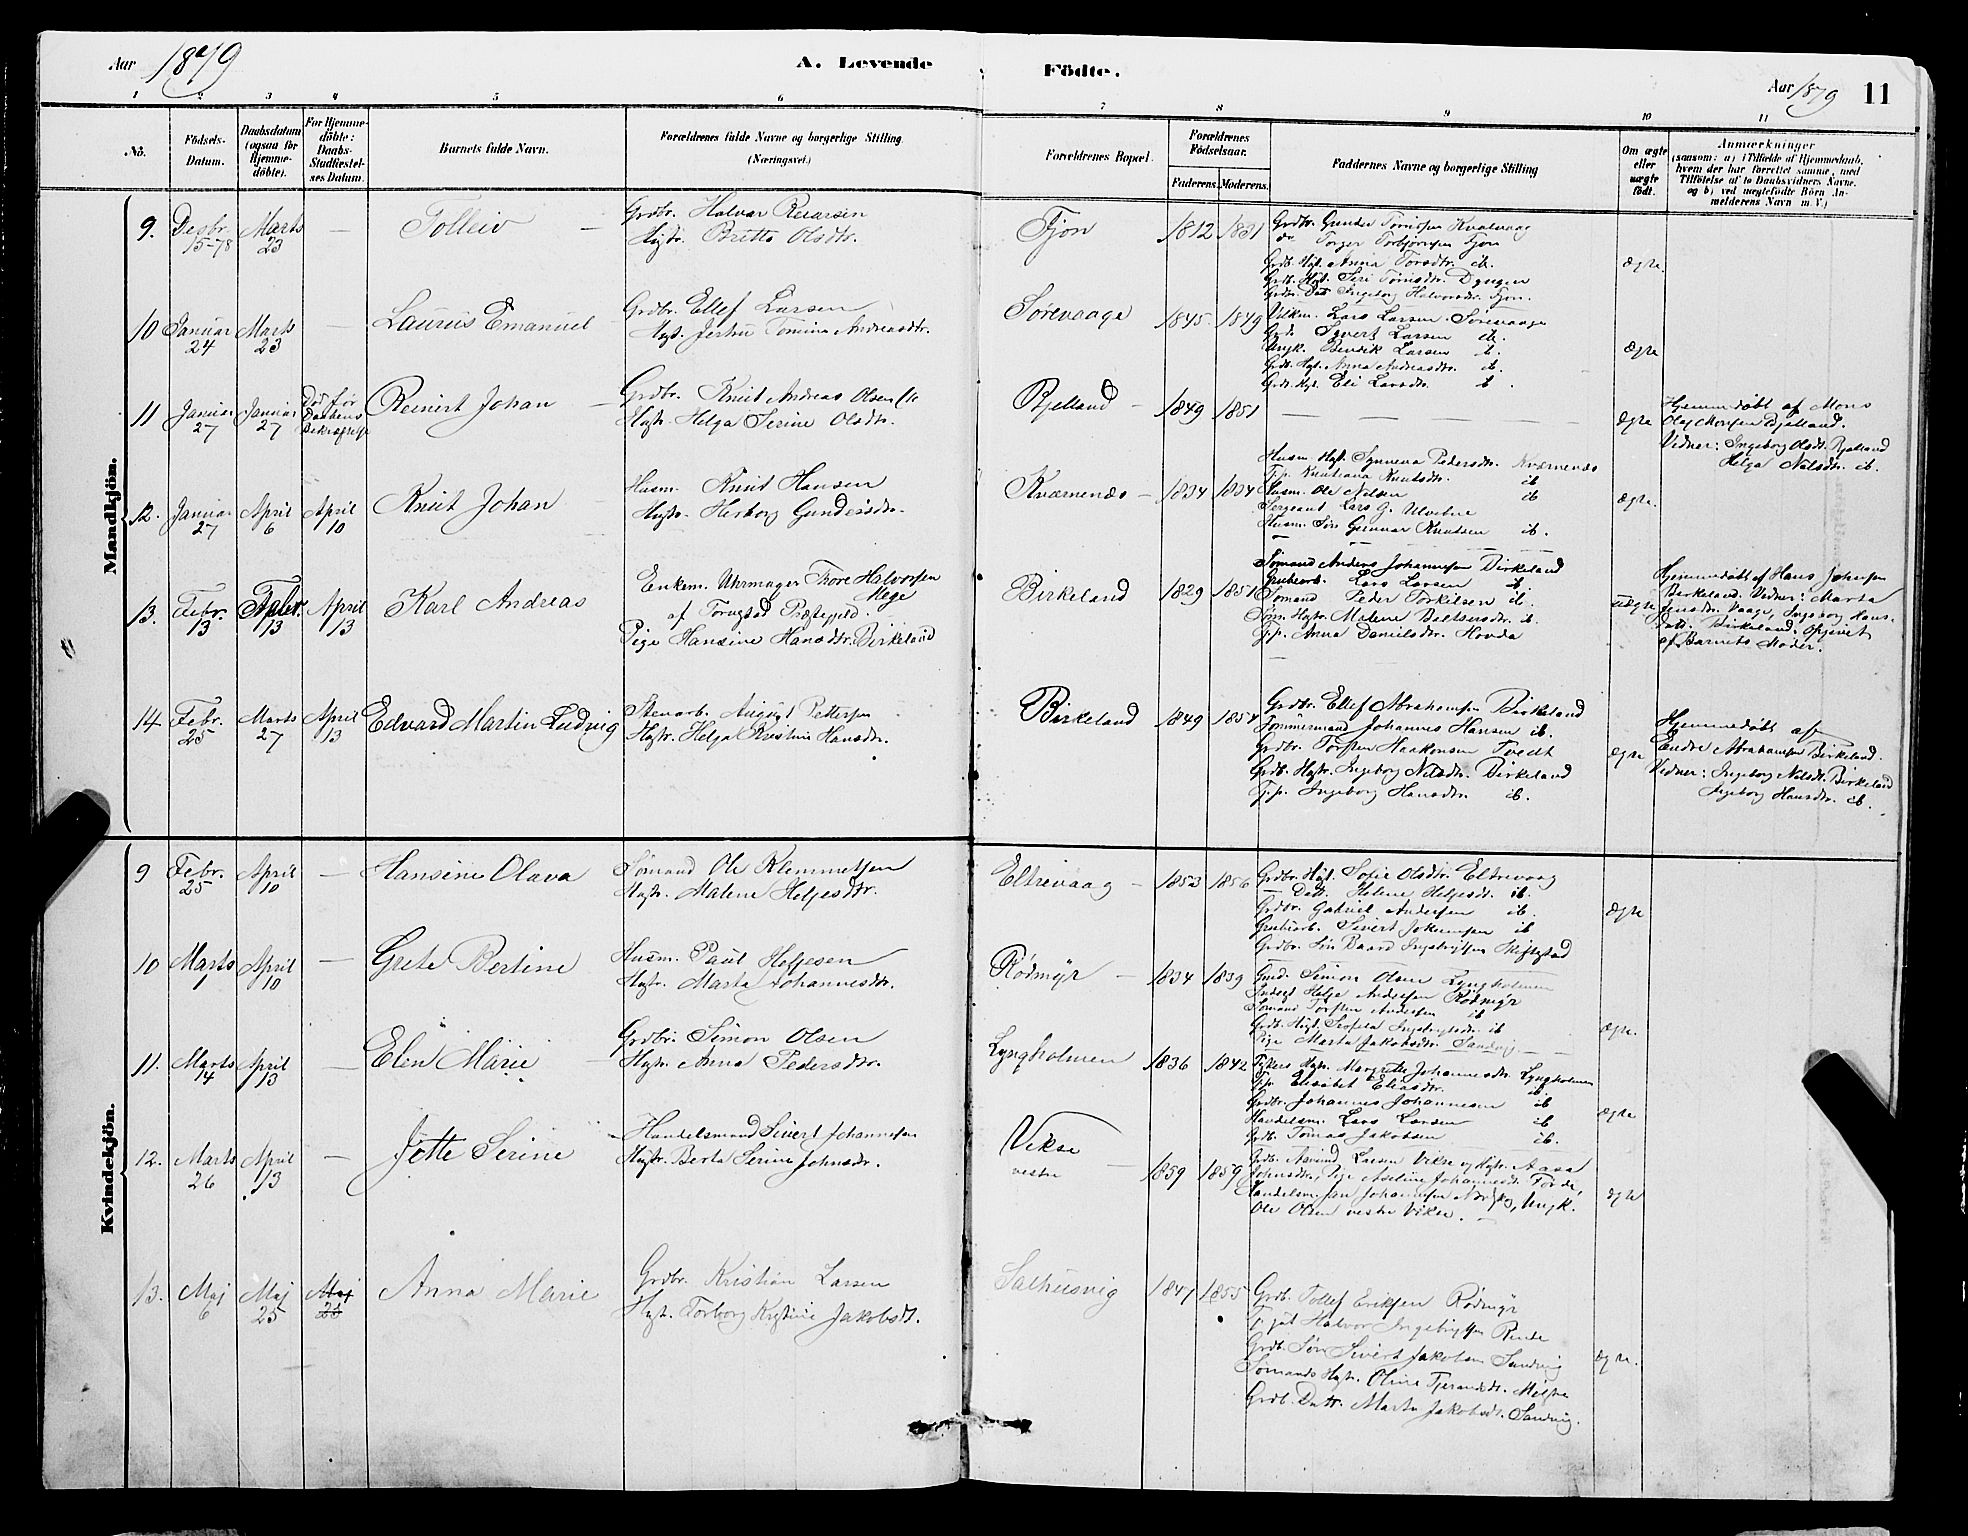 Aar 1879
A. Levende
Födte.
Aar 1879 11
1 2 3 4 5 6 7 8 9 10 11
Nö.
Födsels-
Datum.
Daabsdatum
(ogsaa for
Hjemme-
döbte).
For Hjemme-
döbte:
Daabs-
Stadfæstel-
ses Datum.
Barnets fulde Navn.
Forældrenes fulde Navne og borgerlige Stilling
(Næringsvei.)
Forældrenes Bopæl.
Forældrenes
Födselsaar.
Faderens. Moderens.
Faddernes Navne og borgerlige Stilling
Om ægte
eller
uægte
födt.
Anmærkninger
(saasom: a) i Tilfælde af Hjemmedaab,
hvem der har forrettet samme, med
Tilföielse af to Daabsvidners Navne.
og b) ved uægtefödte Börn An-
melderens Navn m. V.)
Mandkjön.
9. Desbr. 15-78
Marts 23
—
Tolleiv
Grdbr. Halvor
Hustr. Britte Olsdtr.
Fjon
1812 1831
Grdbr. Gunder Kvalvaag
do Torger Torbjørnsen Fjon
Grdb. Hst. Anna Torsdtr. ib.
Grdbr. Datt. Ingeborg Halvorsdtr. Fjon.
Ægte.
10 Januar 24
Marts 23
—
Laurus Emanuel
Grdbr. Ellef Larsen
Hust. Jertru Tomine Andreasdtr.
Sørevaage
1845 1849
Lars Larsen Sørevaage
Sivert Larsen ib.
Ungk. Bendik Larsen ib.
Grdb. Hst. Anna Andreasdtr. ib.
Grdb. Hst. Eli Larsdtr. ib.
Ægte
11 Januar 27
Januar 27
Død før
Daabens
Bekræftelse
Reinert Johan
Grdbr. Knut Andreas Olsen
Hustr. Helga Serine Olsdtr.
Bjelland
1849 1851
—
Ægte
Hjemmedøbt af Mons
Olaf Monsen Bjelland.
Vidner: Ingeborg Olsdt. Bjelland
Helga Nilsdtr. ib.
12. Januar 27
April 6
April 10
Knut Johan
Husm. Knut Hansen
Hustr. Herborg Gundersdtr.
Kværnenæs
1834 1834
Husm. Hst. Synneva Pedersdtr. Kværnenæs
Knutsdtr. ib
Husm. Ole Nilsen ib
Sergeant Lars G. Ulveberæ
Husm. Søn Gunnar Knutsen ib.
Ægte.
13. Febr. 13
Febr. 13
April 13
Karl Andreas
Enkem. Uhrmager Tore Halvorsen
Hege
af Præstegjeld.
Pige Hansine Hansdtr. Birkeland
Birkeland
1829 1851
Sømand Anders Johannesen Birkeland
Lars Larsen ib.
Sømand Peder Torkelsen ib.
Malene Baltsersdtr. ib.
Anna Danielsdtr. Hovda
uægte
Hjemmedøbt af Hans Johnsen
Birkeland. Vidner: Marta
Jensdtr. Vaage, Ingeborg Hans-
datt. Birkeland. Opgivet
af Barnets Moder.
14. Febr. 25
Marts 27
April 13
Edvard Martin Ludvig
Stenarb. August Pettersen
Hustr. Helga Kristine Hansdtr.
Birkeland
1849 1854
Grdbr. Ellef Abrahamsen Birkeland
Tømmermand Johannes Hansen ib.
Grdbr. Torsten Haakensen Tvedt
Grdb. Hustr. Ingeborg Nilsdtr. Birkeland
Ingeborg Hansdtr. ib.
Ægte
Hjemmedøbt af
Endre Abrahamsen Birkeland.
Vidner: Ingeborg Nilsdt. Birkeland
Ingeborg Hansdtr. ib.
Kvindekjön.
9 Febr. 25
April 10
—
Hansine Olava
Sømand Ole Klemmetsen
Hustr. Malene Helgesdtr.
Eltrevaag
1853 1856
Grdbr. Hst. Sofie Olsdtr. Eltrevaag
— Datt. Helene Helgesdt. ib.
Grdbr. Gabriel Andersen ib.
Grubearb. Sivert Jokumsen ib
Grdbr. Søn Baard Ingebrigtsen
Ægte
10 Marts 1
April 10
—
Grete Bertine
Husm. Paul Helgesen
Hustr. Marta Johannesdtr.
Rødmyr
1834 1839
Simon Olsen Lyngholmen
Helge Andersen Rødmyr
Sømand Torsten Andersen ib
Grdb. Hust. Ingebrigtsdtr. ib
Pige Marta Jakobsdtr. Sandvig
Ægte.
11. Marts 14
April 13
—
Elen Marie
Grdbr. Simon Olsen
Hustr. Anna Pedersdtr.
Lyngholmen
1836 1842
Hustr. Margrethe Johannesdtr. Lyngholmen
Elisabet Eliasdtr. ib.
Grdbr. Johannes Johannesen ib
Handelsm. Lars Larsen ib
Grdb. Tomas Jakobsen ib.
Ægte
12. Marts 26
April 13
—
Jette Serine
Handelsmand Sivert Johannesen
Hustr. Berta Serine Johnsdtr.
Vikse
vestre
1859 1859
Grdb. Aamund Larsen Vikse og Hustr. Aasa
Johnsdtr., Pige Adeline Johannesdt. Førde,
Handelsm. Jan Johannesen Ungk.
Ole Olsen vestre Vikse.
Ægte
13. Maj 6
Maj 25
Maj 25
Anna Marie
Grdbr. Kristian Larsen
Hust. Torborg Kristine Jakobsdt.
Salhusvig
1847 1855
Grdb. Tollef Eriksen Rødmyr
Halvor Ingebrigtsen
Grdb. Søn Sivert Jakobsen Sandvig
Sømands Hustr. Oline
Grdb. Dattr. Marta Jakobsdt. Sandvig.
Ægte.